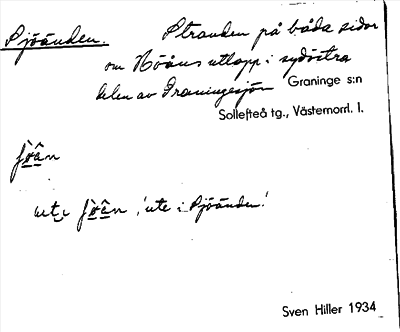 Sjöänden. Stranden på båda sidor
om Nööns utlopp i sydöstra
delen av Graningesjön Graninge s:n
Sollefteå tg., Västernorrl. l.
ute i
'ute i Sjöänden'
Sven Hiller 1934